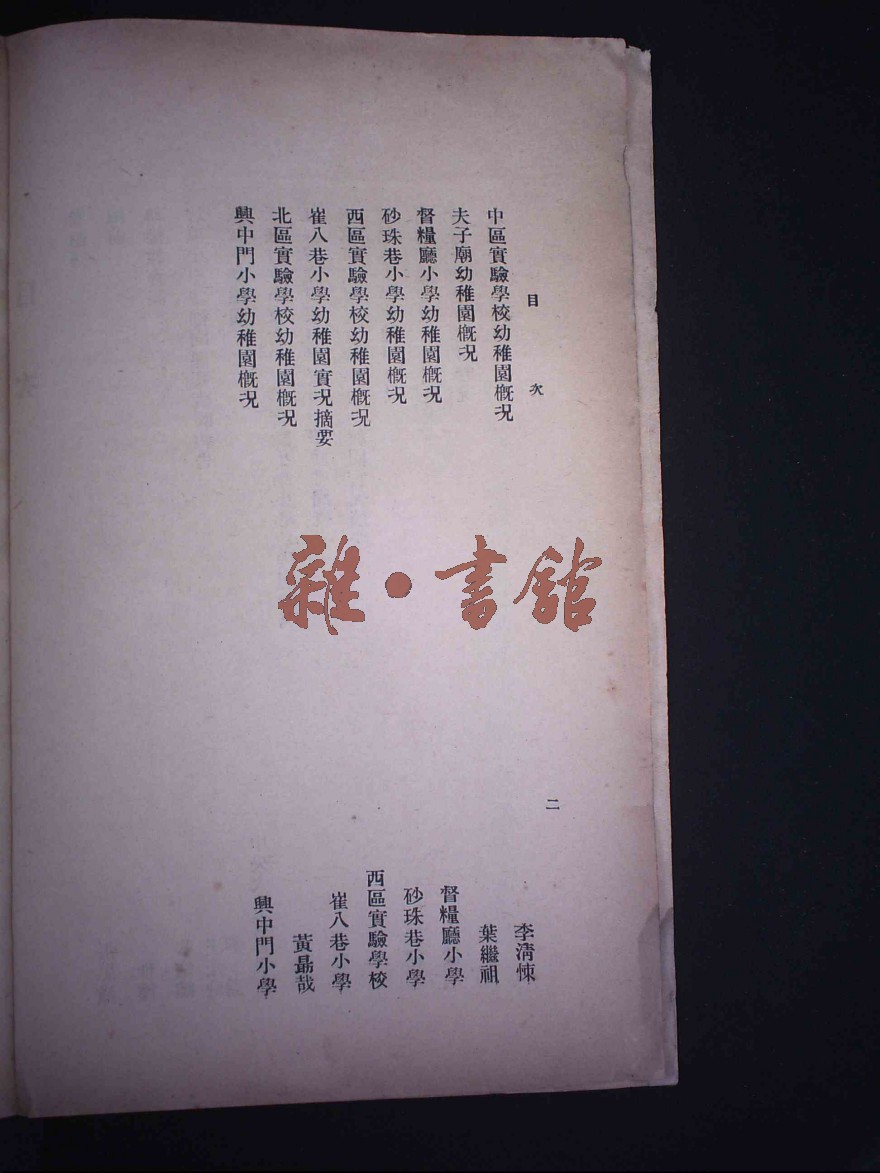 目次
二
中區實驗學校幼稚園概况 李清悚
夫子廟幼稚園概况 葉繼祖
督糧廳小學幼稚園概况 督糧廳小學
砂珠巷小學幼稚園概况 砂珠巷小學
西區實驗學校幼稚園概况 西區實驗學校
崔八巷小學幼稚園實况摘要 崔八巷小學
北區實驗學校幼稚園概况 黃勗哉
興中門小學幼稚園概况 興中門小學
雜·書館